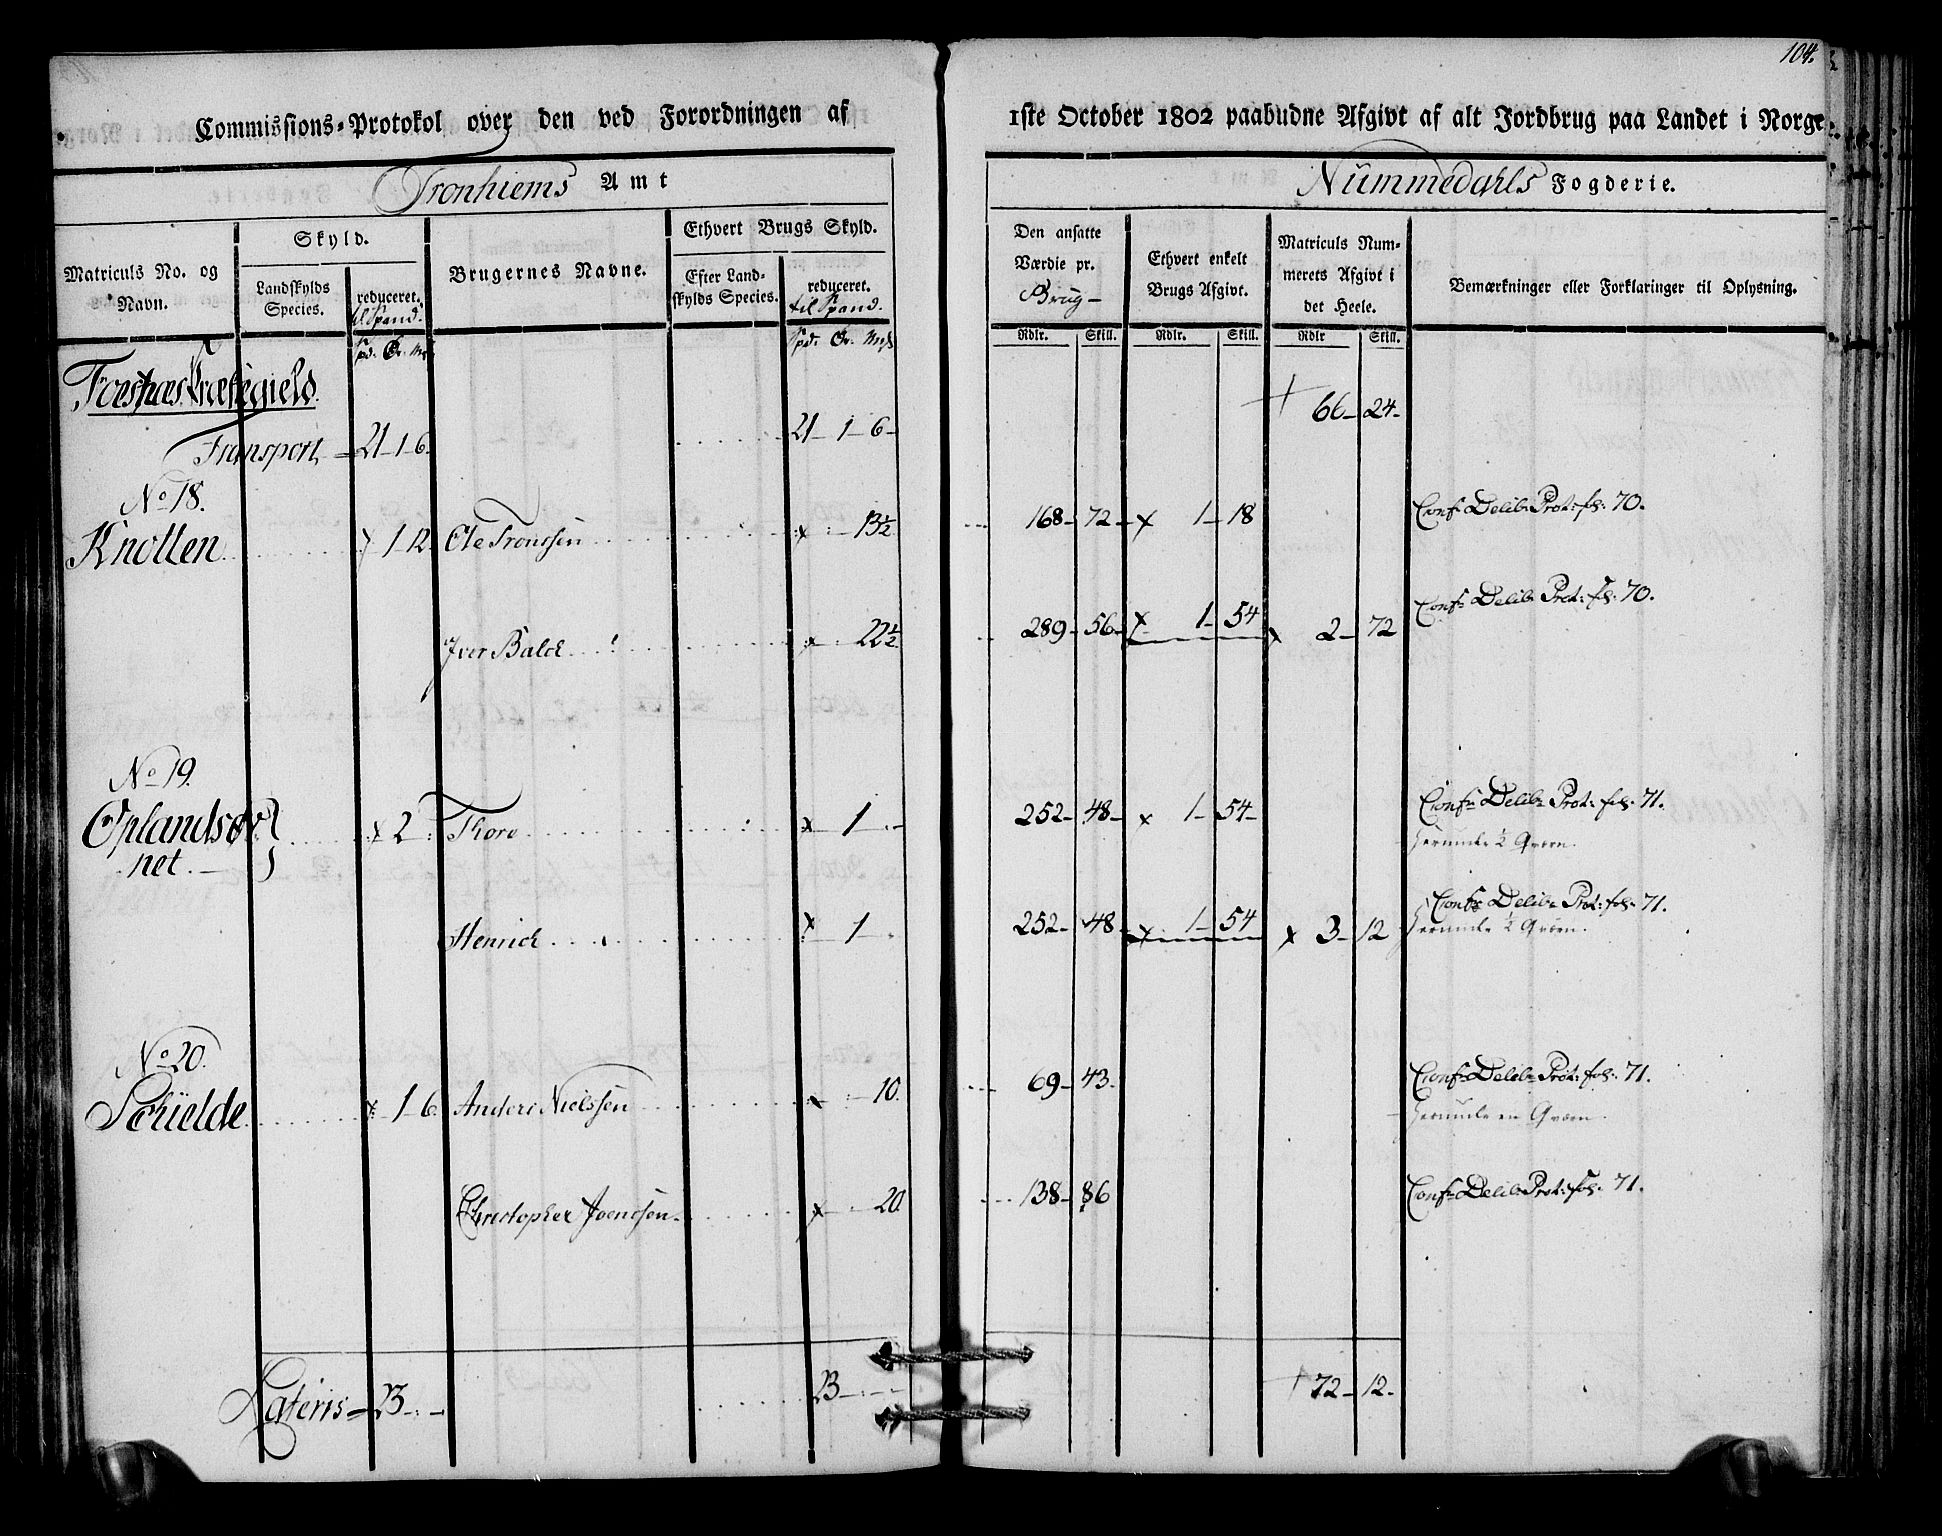 104.
Commissions-Protokol over den ved Forordningen af 1ste October 1802 paabudne Afgivt af alt Jordbrug paa Landet i Norge
Tronhiems Amt
Nummedahls Fogderie.
Matriculs No. og Navn.
Skyld.
Landskylds Species.
reduceret. til Spand.
Brugernes Navne.
Ethvert Brugs Skyld.
Efter Landskylds Species.
reduceret. til Spand.
Den ansatte Værdie pr. Brug-
Ethvert enkelt Brugs Afgivt.
Matriculs Nummerets Afgivt i det Heele.
Bemærkninger eller Forklaringer til Oplysning.
Spd. Ør. Mk Spd. Ør. Mk Rdlr. Skill. Rdlr. Skill. Rdlr Skill.
Foesnæs Præstegield.
Transport = 21-1-6. 21-1-6- 66-24-
No 18.
Knotten 1-12. Ole Tronssen 13½ 168-72- x 1-18 Conf: Delib: Prot: fol: 70.
Iver Balck 22½ 289-56- x 1-54 x 2-72 Conf: Delib: Prot: fol: 70.
No 19.
Oplandsør- x 2: Thore x 1 252-48- x 1-54- Conf: Delib: Prot: fol: 71.
net. herunder ½ Qværn.
Henrich x 1 252-48- x 1-54 x 3-12 Conf: Delib: Prot: fol: 71.
herunder ½ Qværn.
No 20.
Schielde x 1-6. Anders Nielssen 10. 69-43- Conf: Delib: Prot: fol: 71.
herunder en Qværn.
Christopher Joenssen x 20 138-86 Conf: Delib: Prot: fol: 71.
Lateris = 23- 23- 72-12-